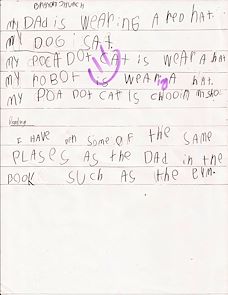 my DaD is WEArING A rED hat.
my DOG i SAt.
my POCA DOt CAt is WEAr A hat
my rOBOt is WEArA hat.
my POA DOt CAt IS
I HAVE SomE OF thE SAmE
PLASES AS thE DAD in thE
BOOK SUCH AS thE GYM.